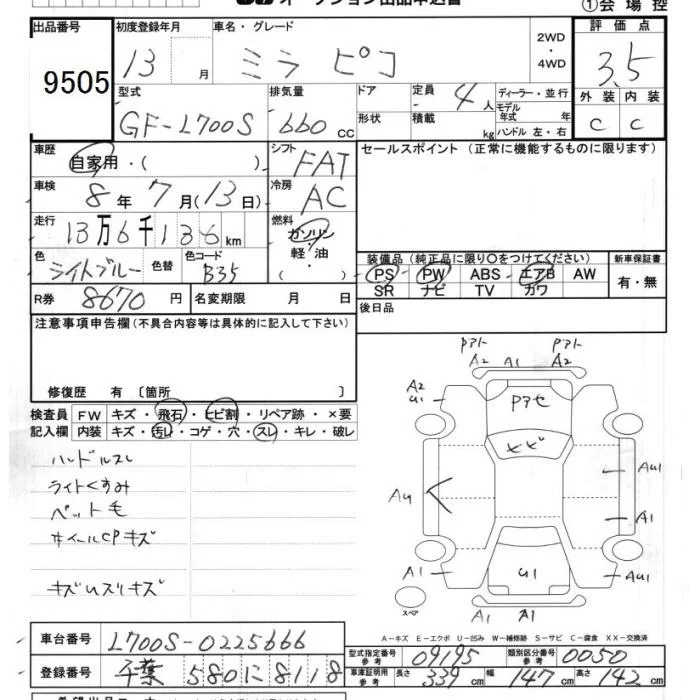 オークション出品申込書
①会場控
出品番号 初度登録年月 車名・グレード 2WD・4WD 評価点
9505 13 月 ミラ ピコ 3.5
型式 排気量 ドア 定員 4人 ディーラー・並行
モデル年式 年
GF-L700S 660cc 形状 積載 kg ハンドル 左・右
外装 内装
C C
車歴 自家用・( ) シフト FAT
セールスポイント(正常に機能するものに限ります)
車検 8年 7月(13日) 冷房 AC
走行 13万6千136km 燃料 ガソリン 軽・油 ・( )
色 ライトブルー 色替 色コード B35
装備品(純正品に限り○をつけてください) 新車保証書
PS PW ABS エアB AW 有・無
SR ナビ TV カワ
R券 8670円 名変期限 月 日
後日品
注意事項申告欄(不具合内容等は具体的に記入して下さい)
修復歴 有〔箇所 〕
検査員記入欄
FW キズ・飛石・ヒビ割・リペア跡・×要
内装 キズ・汚レ・コゲ・穴・スレ・キレ・破レ
ハンドルスレ
ライトくすみ
ペット毛
ホイールCPキズ
キズUスリキズ
Pアト Pアト
A2 A1 A2
A2
U1
Pアセ
ヒビ
AU1
A1
A1
U1
AU1
A1 A1
スペア
A-キズ E-エクボ U-凹み W-補修跡 S-サビ C-腐食 XX-交換済
車台番号 L700S-0225666
登録番号 千葉 580 に 8118
型式指定番号 参考 09195 類別区分番号 参考 0050
車庫証明用 参考 長さ 339cm 幅 147cm 高さ 142cm